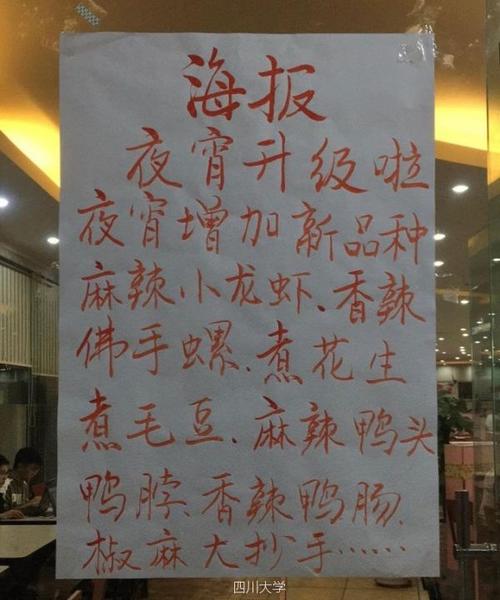 海报
夜宵升级啦
夜宵增加新品种
麻辣小龙虾、香辣
佛手螺、煮花生
煮毛豆、麻辣鸭头
鸭脖、香辣鸭肠、
椒麻大抄手……
四川大学